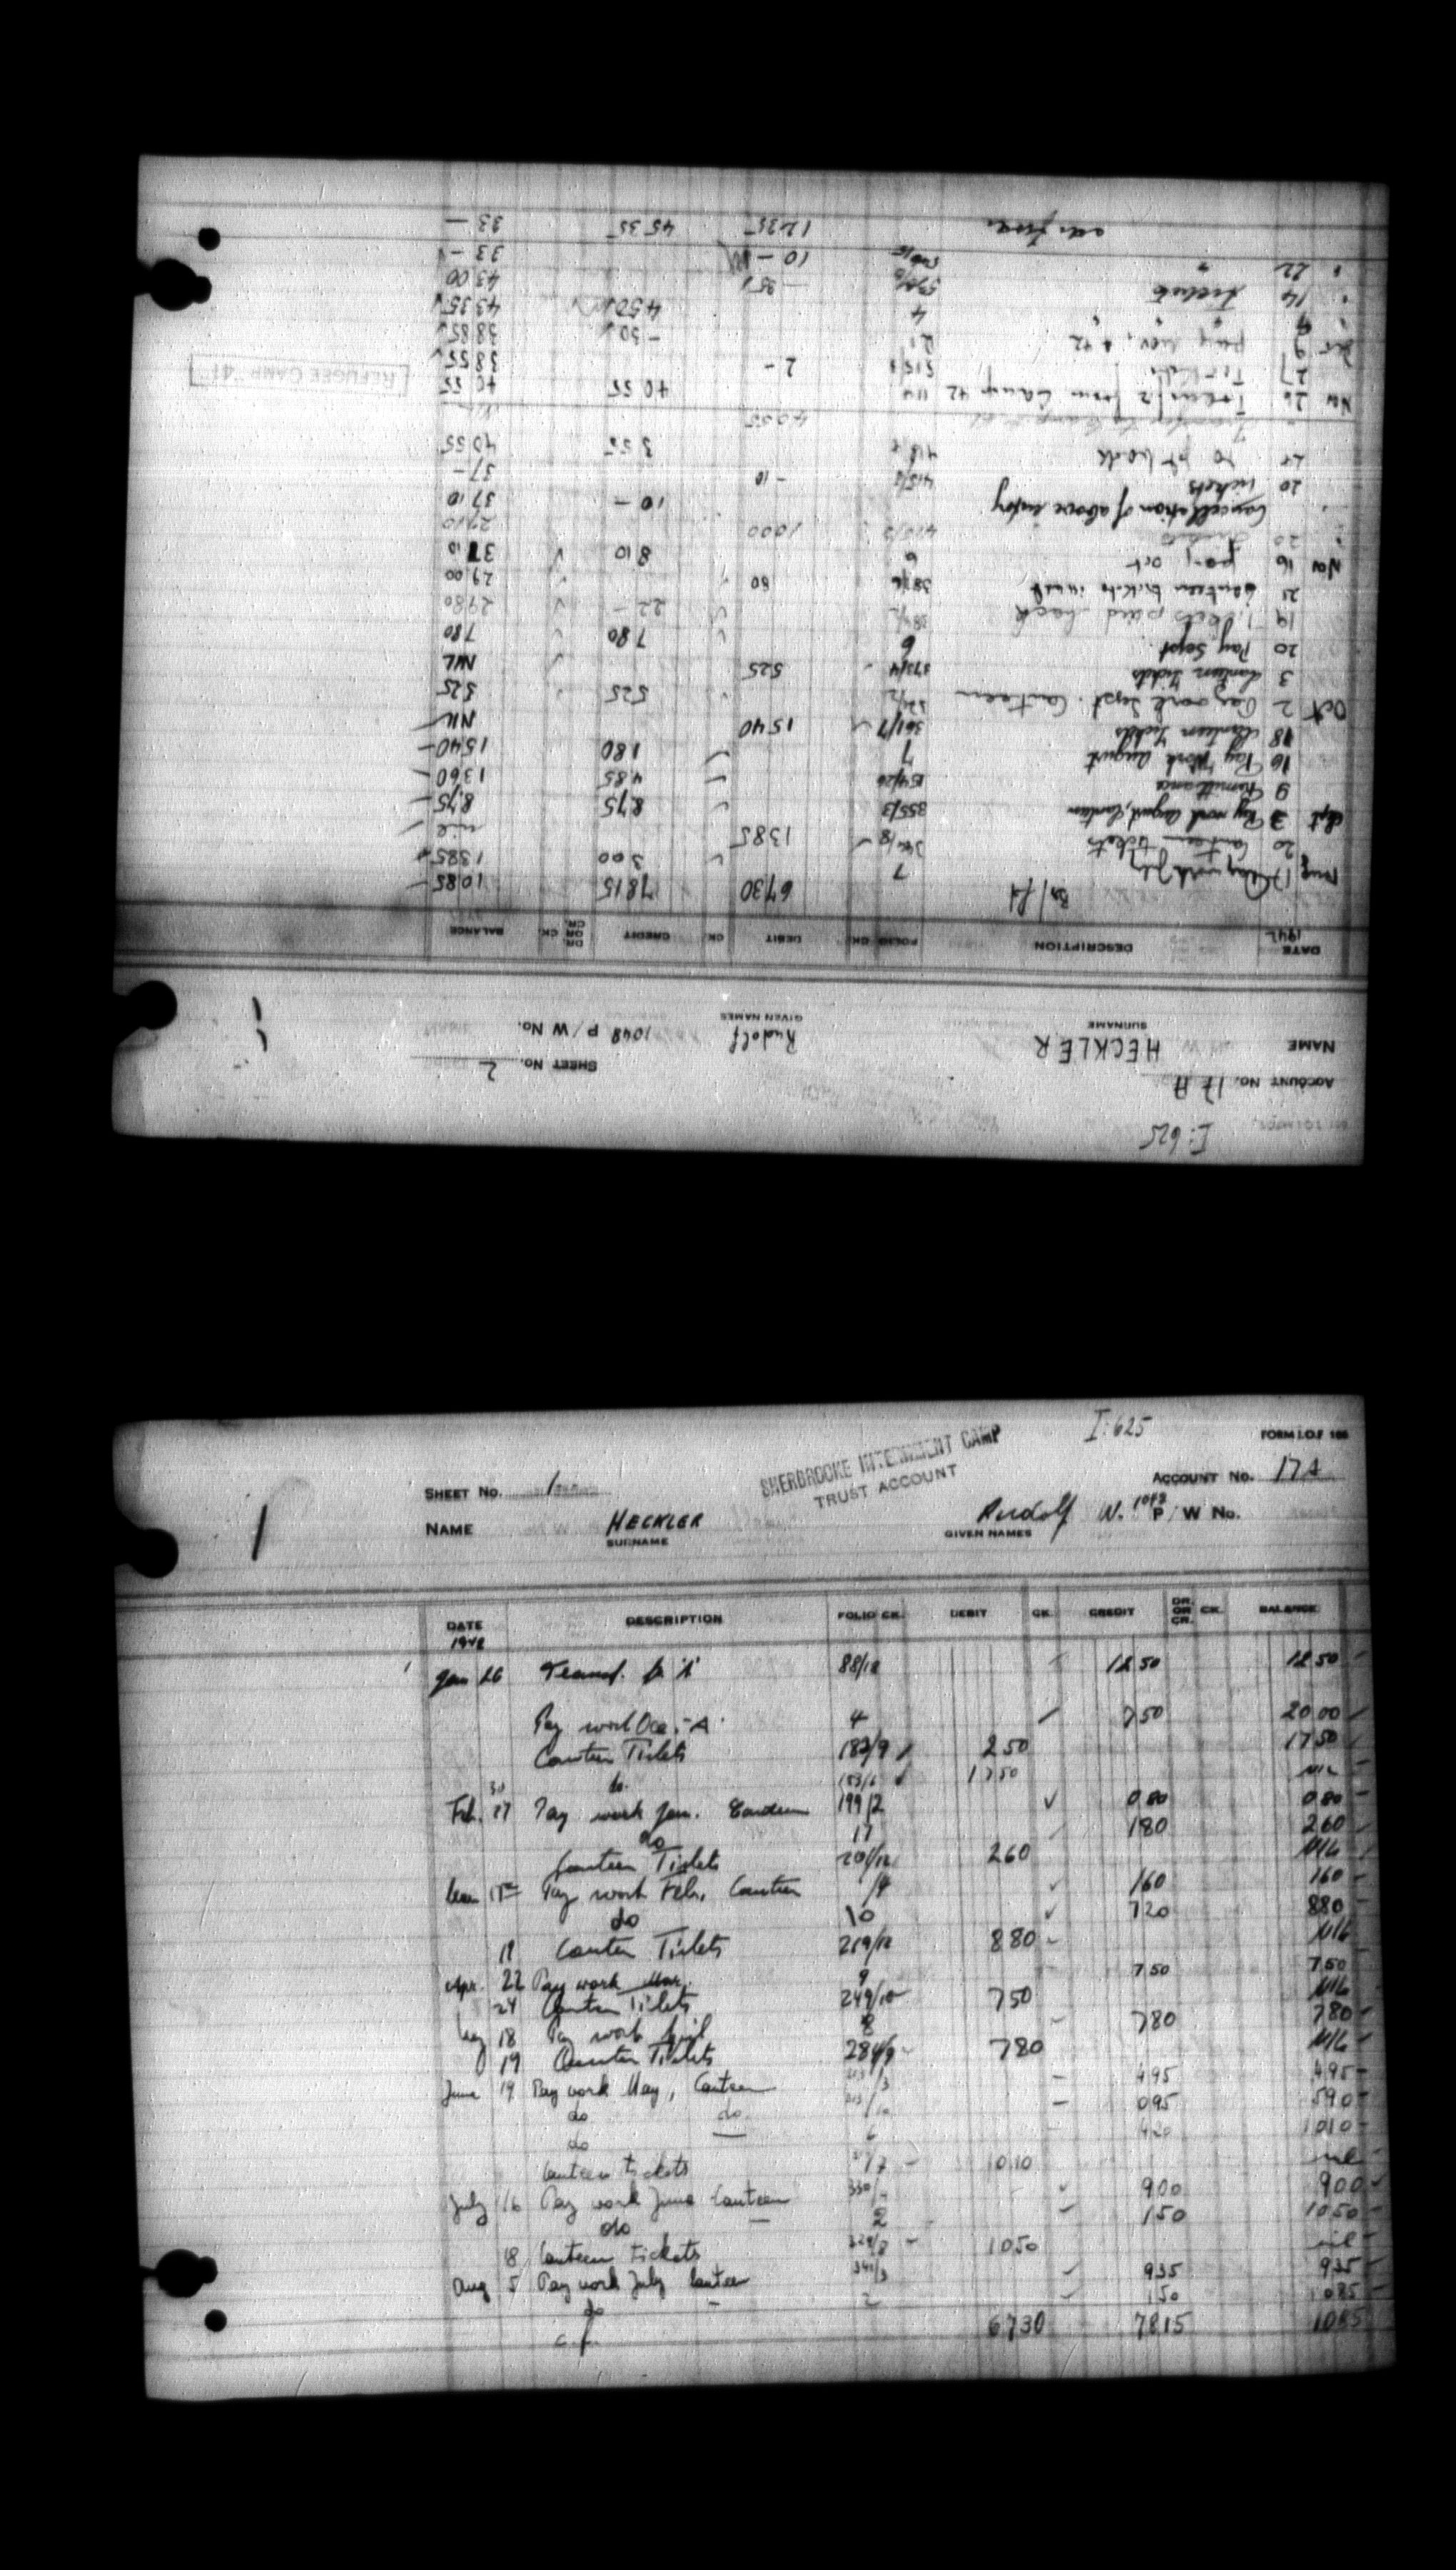 I: 625
FORM I.O.F 166
SHERBROOKE INTERNMENT CAMP
TRUST ACCOUNT
SHEET No. 1
ACCOUNT No. 17A
1
NAME HECKLER Rudolf W. 1048 P/W No.
SURNAME GIVEN NAMES
DATE DESCRIPTION FOLIO CK. DEBIT CK. CREDIT DR. OR CR. CK. BALANCE
1942
Jan 26 88/12 12 50 12 50
Pay work 4 7 50 20 00
Canteen Tickets 182/9 2 50 17 50
do. 17 50 Nil
Feb. 27 Pay work Jan. Canteen 199/2 0 80 0 80
do 17 1 80 2 60
Canteen Tickets 201/12 2 60 Nil
Pay work Feb. Canteen 1 60 1 60
do 10 7 20 8 80
19 Canteen Tickets 219/12 8 80 Nil
Apr. 22 Pay work Mar. 9 7 50 7 50
24 Canteen Tickets 249/10 7 50 Nil
May 18 Pay work April 8 7 80 7 80
19 Canteen Tickets 284/9 7 80 Nil
June 19 Pay work May, Canteen 4 95 4 95
do do 0 95 5 90
do 6 4 20 10 10
Canteen tickets 10 10 nil
July 16 Pay work June Canteen 330/ 9 00 9 00
do 2 1 50 10 50
18 Canteen tickets 329/8 10 50 nil
Aug 5 Pay work July Canteen 341/3 9 35 9 35
do 2 1 50 10 85
c.f. 67 30 78 15 10 85
I: 625
ACCOUNT No. 17 A
SHEET No. 2
NAME HECKLER Rudolf 1048 P/W No.
SURNAME GIVEN NAMES
DATE DESCRIPTION FOLIO CK. DEBIT CK. CREDIT DR. OR CR. CK. BALANCE
1942
Br/fd 67 30 78 15 10 85
Aug 17 Pay work July 7 3 00 13 85
20 Canteen tickets 346/8 13 85 nil
Sept 3 Pay work August, Canteen 355/3 8 75 8,75
9 Remittance 154/26 4 85 13 60
16 Pay Work August 7 1 80 15 40
18 Canteen Tickets 361/7 15 40 NIL
Oct 2 Pay work Sept. Canteen 5 25 5 25
3 Canteen Tickets 373/4 5 25 NIL
20 Pay Sept 6 7 80 7 80
19 Tickets paid back 22 - 29 80
21 Canteen tickets 80 29 00
Nov 16 pay oct 6 8 10 37 10
20 Tickets 415/5 10 00 27 10
Cancellation of above entry 10 - 37 10
20 tickets 415/5 - 10 37 -
3 55 40 55
Transfer to Camp 40 55
Nov 26 Transf. from Camp 42 114 40 55 40 55
27 Tickets 515/ 2 - 38 55
Dec 9 pay Nov, 42 21 - 30 38 85
" " " 4 4 50 43 35
" 14 Tickets - 35 43 00
" 22 " 10 - 33 -
12 35 45 35 33 -
REFUGEE CAMP "41"